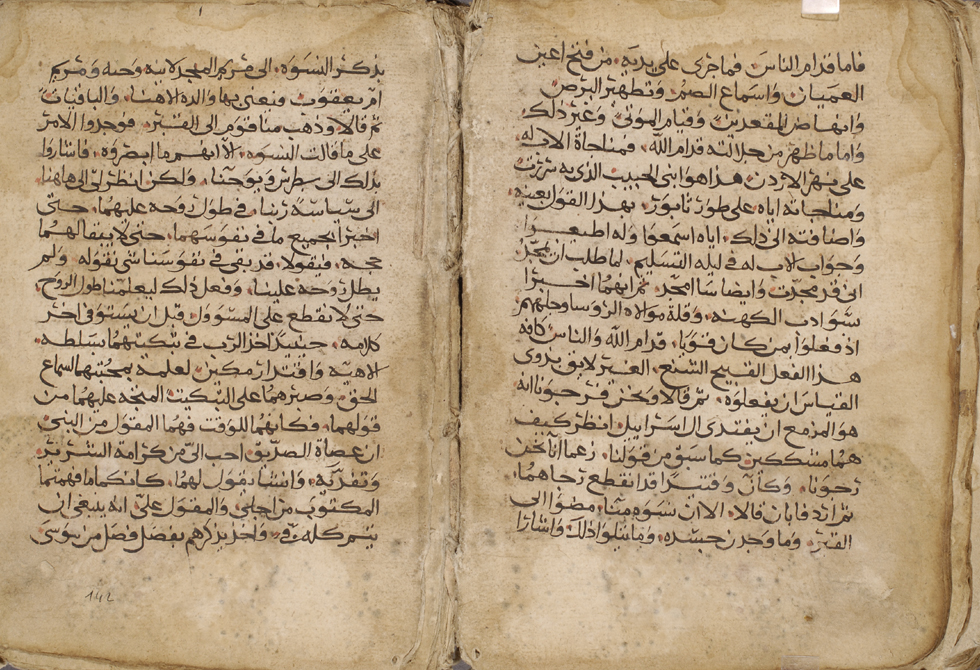 فاما قدام الناس فما جرى على يديه من فتح اعين
العميان واسماع الصم وتطهير البرص
وانهاض المقعدين وقيام الموتى وغير ذلك
واما ما ظهر من جلالته قدام الله فمناجاة الاب له
على نهر الاردن هذا هو ابنى الحبيب الذى به سررت
ومناجاته اياه على طور تابور بهذا القول بعينه
واضافته الى ذلك اياه اسمعوا وله اطيعوا
وجواب الاب له فى ليلة التسليم لما طلب ان يمجد
انى قد مجدت وايضا سامجد ثم انهما اخبرا
بسو ادب الكهنه وقلة موالاة الروسا وجهلهم
اذ فعلوا بمن كان قويا قدام الله والناس كافه
هذا الفعل القبيح الشنع الغير لايق بذوى
القياس ان يفعلوه ثم قالا ونحن فرجونا انه
هو المزمع ان يفتدى ال اسراييل انظر كيف
هما متشككين كما سبق من قولنا زعما اننا نحن
رجونا وكان وقتيرا قد انقطع رجاهما
ثم اردفا بان قالا الا ان نسوه منا مضوا الى
القبر وما وجدن جسده وما تلوا ذلك واشارا
بذكر النسوه الى مريم المجدلانيه وحنه ومريم
ام يعقوب ونعنى بها والدة الاهنا والباقيات
ثم قالا وذهب منا قوم الى القبر فوجدوا الامر
على ما قالت النسوه الا انهم ما ابصروه فاشاروا
بذلك الى بطرس ويوحنا ولكن انظر لى الى هاهنا
الى سياسة ربنا فى طول روحه عليهما حتى
اخبرا بجميع ما فى نفوسهما حتى لا يبقا لهما
حجه فيقولا قد بقى فى نفوسنا شى نقوله ولم
يطل روحه علينا وفعل ذلك ليعلمنا طول الروح
حتى لا نقطع على المسوول قبل ان يستوفى اخر
كلامه حينيذ اخذ الرب فى تبكيتهما بسلطه
لاهيه واقتدار مكين لعلمه بمحبتهما لسماع
الحق وصبرهما على التبكيت المتجه عليهما من
قولهما فكانهما للوقت فهما المقول من النبى
ان عصاة الصديق احب الى من كرامة الشرير
وتفديه وانتبا بقول لهما كانكما ما فهمتما
المكتوب من اجلى والمقول على انه ينبغى ان
يتم كله فى واخذ يذكرهم بفصل فصل من موسى
142